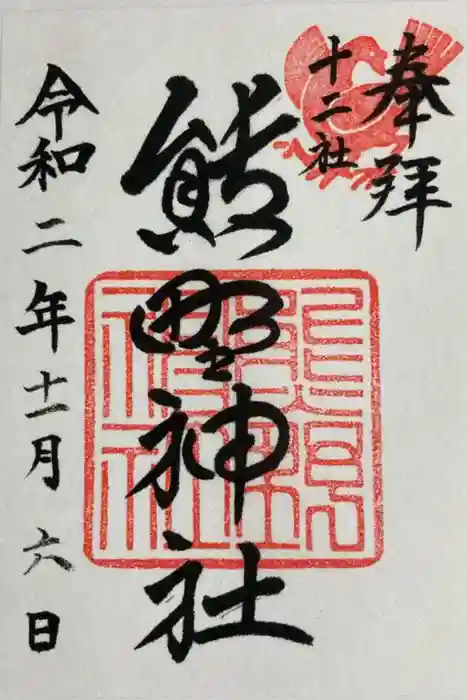 奉拝
十二社
熊野神社
令和二年十一月六日